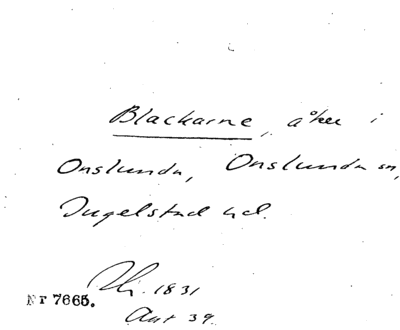 Blackarne, åker i
Onslunda, Onslunda sn,
Ingelstad hd.
1831
Nr 7665.
Akt 39.